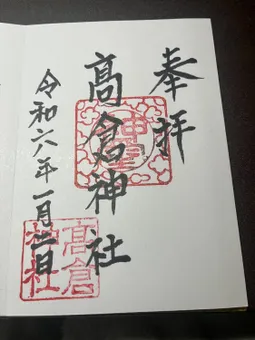 奉拝
髙倉神社
令和六年一月二日
髙倉
神社